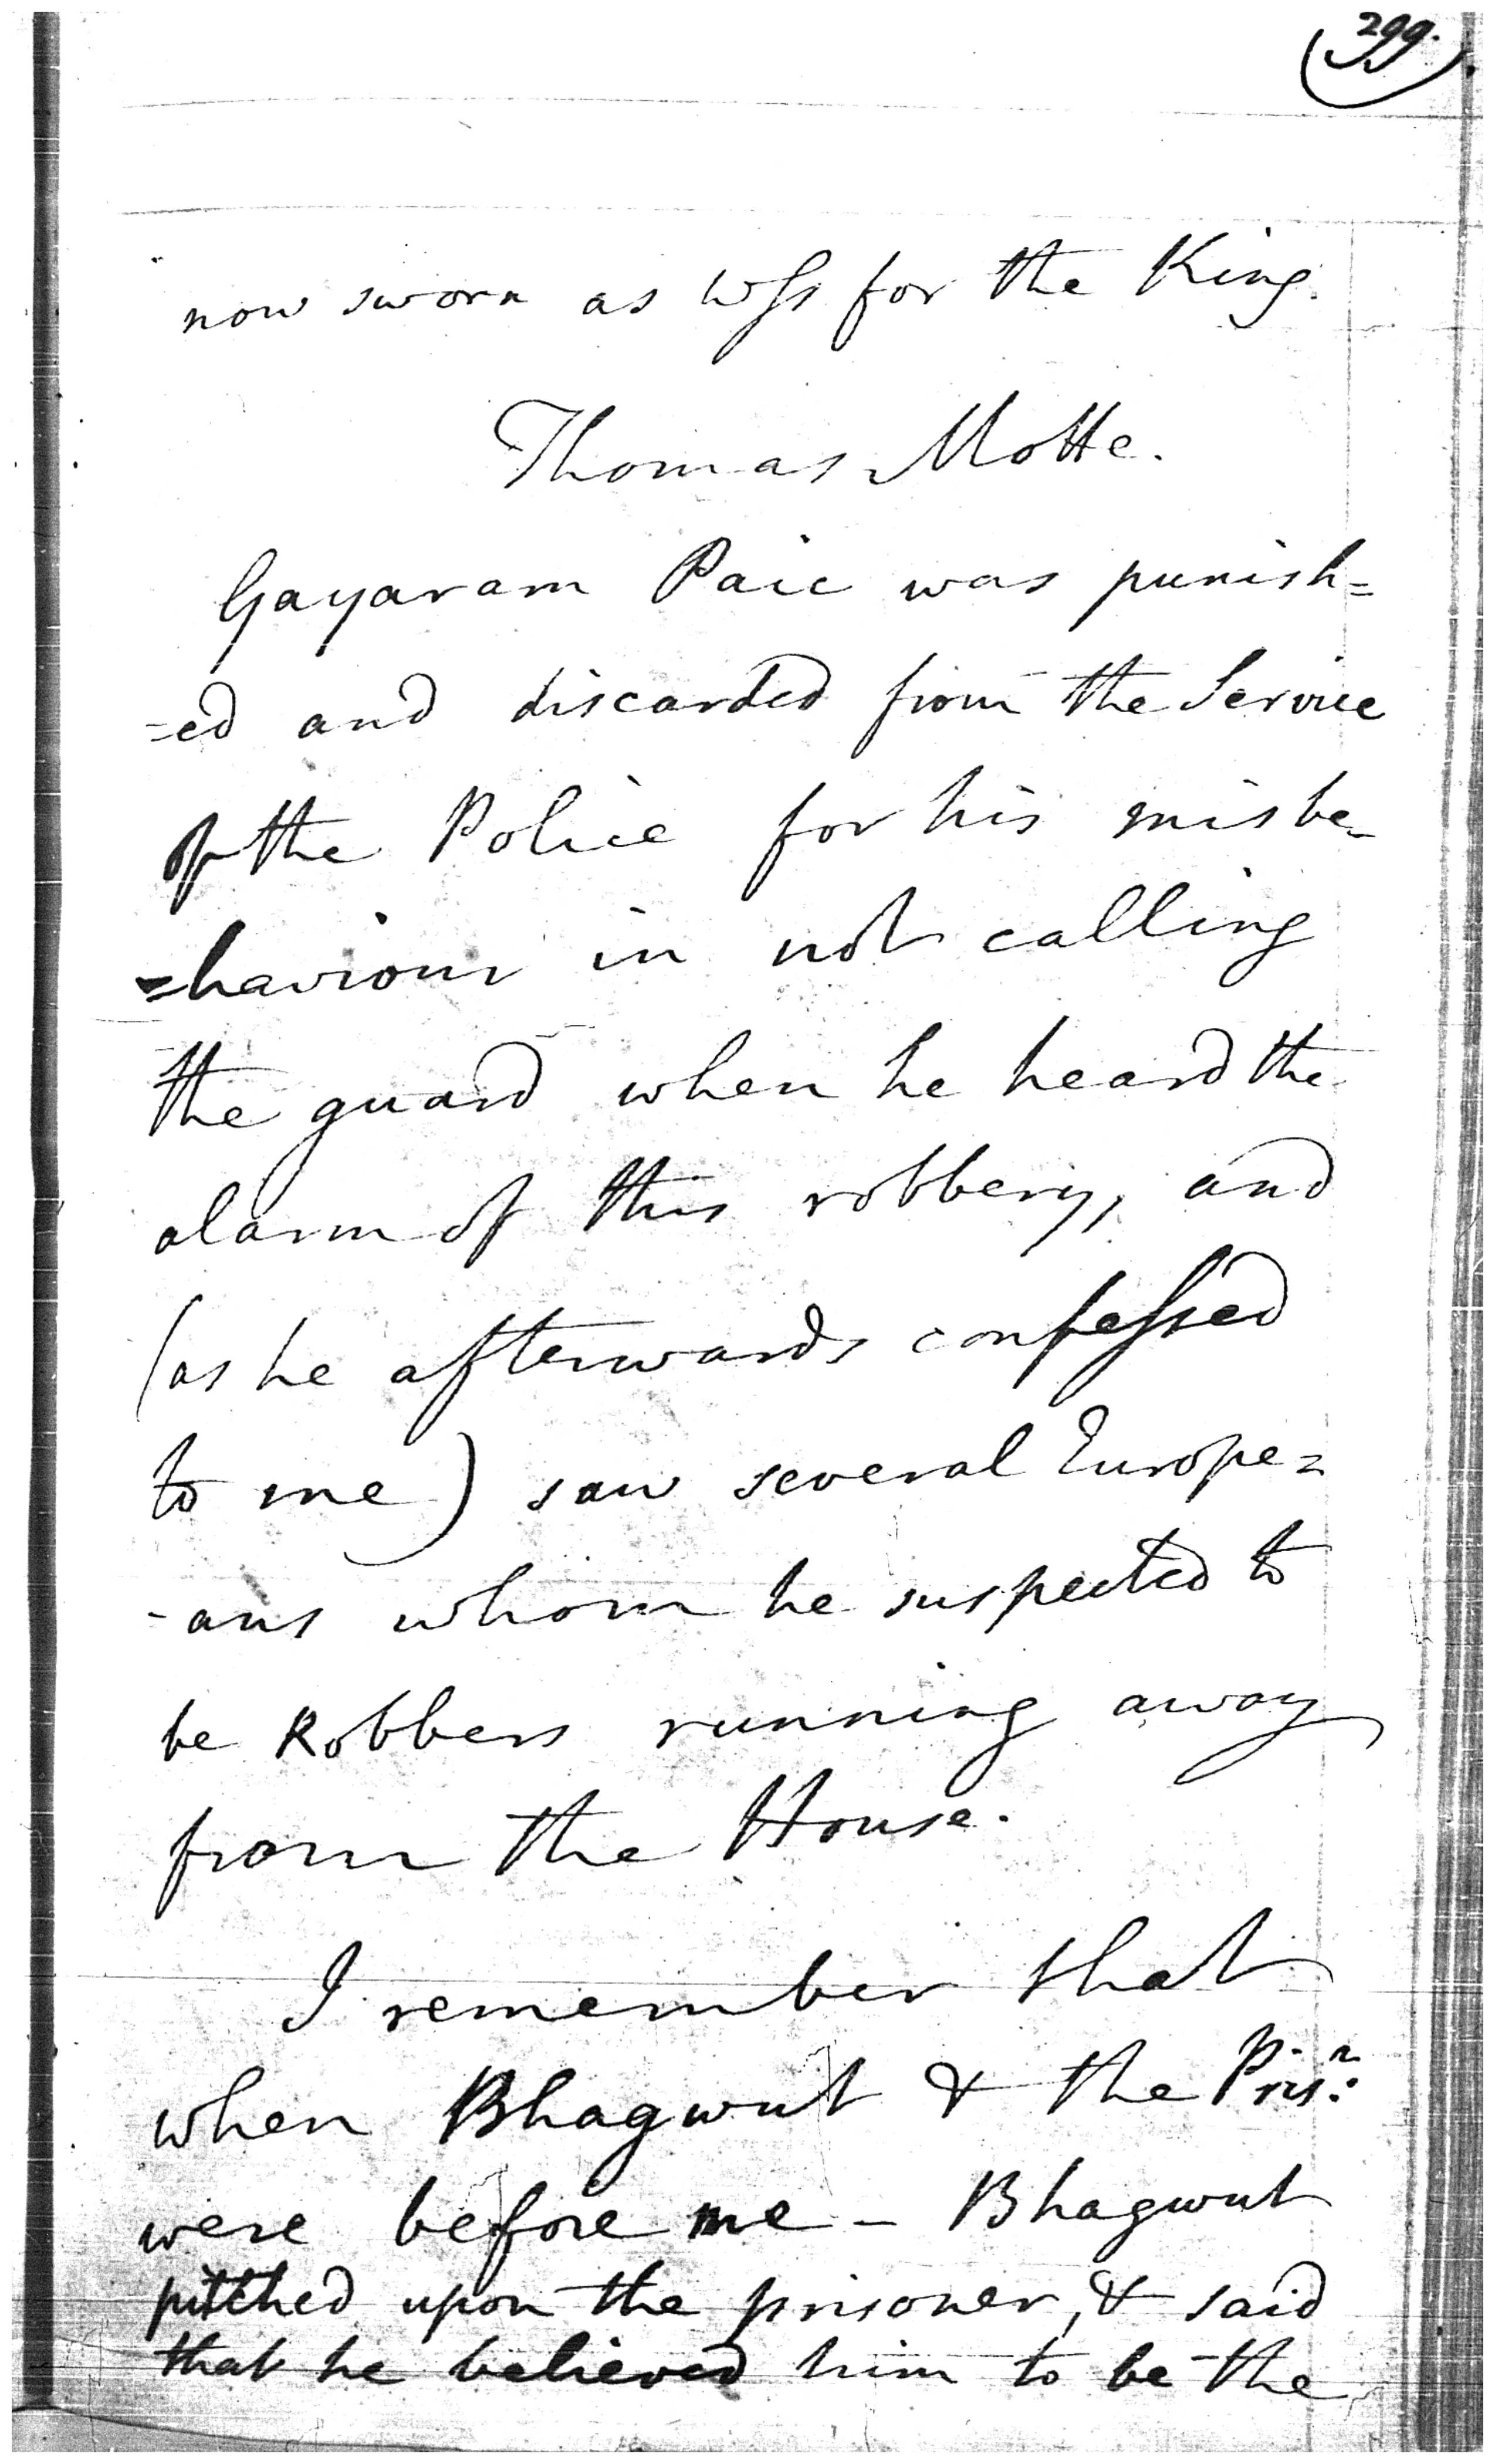 299.
now sworn as Wss for the King.
Thomas Motte.
Gayaram Paic was punish=
=ed and discarded from the Service
of the Police for his misbe=
=haviour in not calling
the guard when he heard the
alarm of this robbery, and
(as he afterwards confessed
to me) saw several Europe=
-ans whom he suspected to
be Robbers running away
from the House.
I remember that
when Bhagwut & the Prisr.
were before me - Bhagwut
pitched upon the prisoner, & said
that he believed him to be the